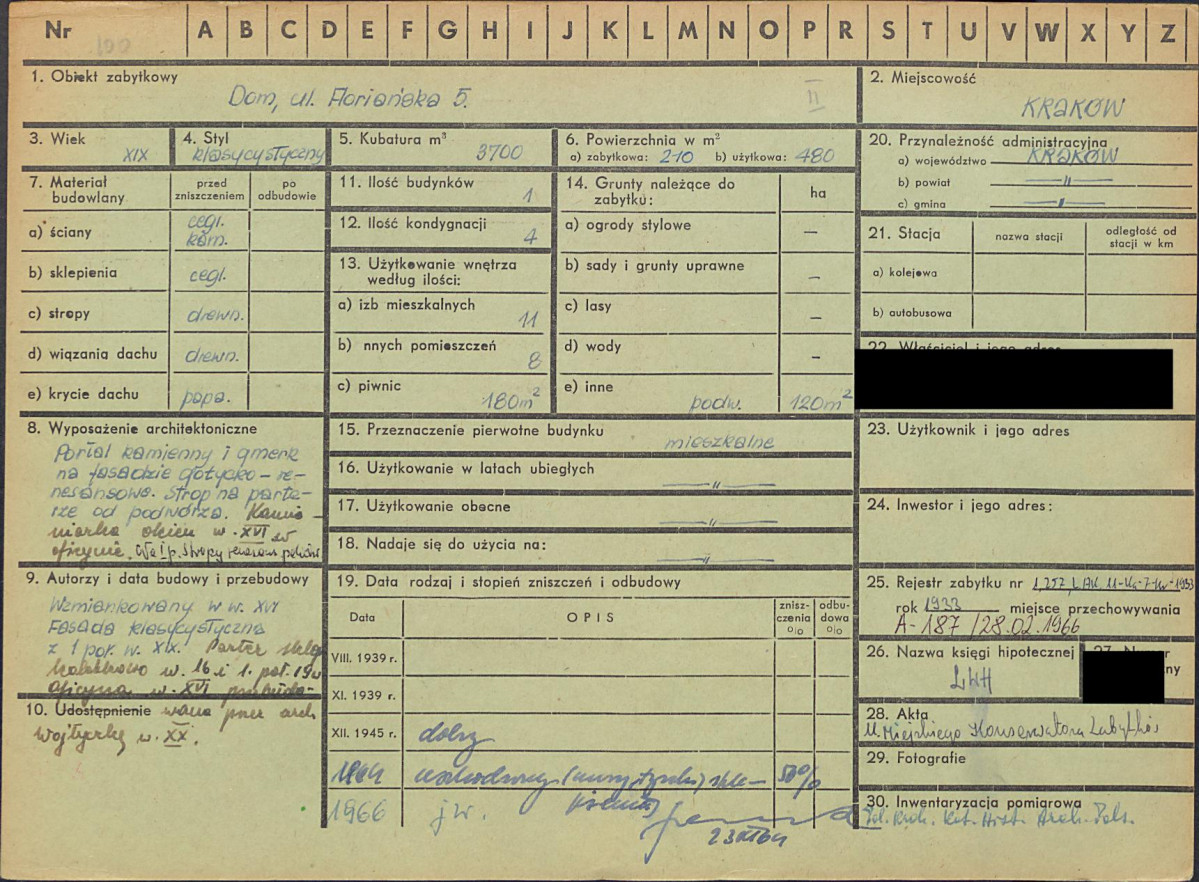 Nr 100 A B C D E F G H I J K L M N O P R S T U V W X Y Z
1. Obiekt zabytkowy
Dom, ul. Floriańska 5. II
2. Miejscowość
KRAKÓW
3. Wiek
XIX
4. Styl
klasycystyczny
5. Kubatura m³
3700
6. Powierzchnia w m²
a) zabytkowa: 210 b) użytkowa: 480
20. Przynależność administracyjna
a) województwo KRAKÓW
b) powiat —"—
c) gmina —"—
7. Materiał budowlany
przed zniszczeniem
po odbudowie
a) ściany cegl. kam.
b) sklepienia cegl.
c) stropy drewn.
d) wiązania dachu drewn.
e) krycie dachu papa.
11. Ilość budynków
1
12. Ilość kondygnacji
4
13. Użytkowanie wnętrza według ilości:
a) izb mieszkalnych
11
b) nnych pomieszczeń
8
c) piwnic
180m²
14. Grunty należące do zabytku:
ha
a) ogrody stylowe —
b) sady i grunty uprawne —
c) lasy —
d) wody —
e) inne podw. 120m²
21. Stacja
nazwa stacji
odległość od stacji w km
a) kolejowa
b) autobusowa
22. Właściciel i jego adres
8. Wyposażenie architektoniczne
Portal kamienny i gmerk
na fasadzie gotycko-re-
nesansowe. Strop na parte-
rze od podwórza. Kamie-
niarka okien w. XVI w
oficynie. Na I p. stropy renesans.
9. Autorzy i data budowy i przebudowy
Wzmiankowany w w. XVI
Fasada klasycystyczna
z 1 poł. w. XIX. Parter
w. 16 i 1. poł. 19 w
oficyna w. XVI przebudo-
10. Udostępnienie
wana przez arch
Wojtyczkę w. XX.
15. Przeznaczenie pierwotne budynku
mieszkalne
16. Użytkowanie w latach ubiegłych
—"—
17. Użytkowanie obecne
—"—
18. Nadaje się do użycia na:
—"—
19. Data rodzaj i stopień zniszczeń i odbudowy
Data OPIS znisz-czenia % odbu-dowa %
VIII. 1939 r.
XI. 1939 r.
XII. 1945 r. dobry
1964 uszkodzony (mury, tynki) skle- 50%
pienia)
1966 j.w.
23 XI 64
23. Użytkownik i jego adres
24. Inwestor i jego adres:
25. Rejestr zabytku nr
rok 1933 miejsce przechowywania
A-187/28.02.1966
26. Nazwa księgi hipotecznej
LWH
27. Numer
28. Akta
U. Miejskiego Konserwatora Zabytków
29. Fotografie
30. Inwentaryzacja pomiarowa
Pol. Krak. Kat. Hist. Arch. Pols.